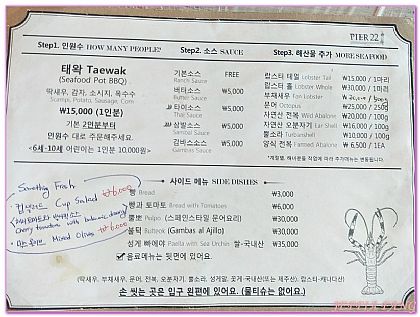 PIER 22
Step1. 인원수 HOW MANY PEOPLE?
태왁 Taewak
(Seafood Pot BBQ)
딱새우, 감자, 소시지, 옥수수
Scampi, Potato, Sausage, Corn
₩15,000 (1인분)
기본 2인분부터
인원수 대로 주문해주세요.
<6세-10세 어린이는 1인분 10,000원>
Step2. 소스 SAUCE
기본소스 FREE
Ranchi Sauce
버터소스 ₩5,000
Butter Sauce
타이소스 ₩5,000
Thai Sauce
삼발소스 ₩5,000
Sambal Sauce
감바스소스 ₩5,000
Gambas Sauce
Step3. 해산물 추가 MORE SEAFOOD
랍스터 테일 Lobster Tail ₩15,000 / 1마리
랍스터 홀 Lobster Whole ₩30,000 / 1마리
부채새우 Fan Lobster
문어 Octopus ₩25,000 / 250g
자연산 전복 Wild Abalone ₩20,000 / 100g
자연산 오분자기 Ear Shell ₩16,000 / 100g
뿔소라 Turbanshell ₩10,000 / 100g
양식 전복 Farmed Abalone ₩6,500 / 1EA
Something Fresh
컵샐러드 Cup Salad ₩6,000
Cherry tomatoes with balsamic dressing
믹스올리브 Mixed Olives ₩6,000
사이드 메뉴 SIDE DISHES
빵 Bread ₩3,000
빵과 토마토 Bread with Tomatoes ₩6,000
뽈뽀 Pulpo (스페인스타일 문어요리) ₩30,000
불틱 Butteok (Gambas al Ajillo) ₩30,000
성게 빠에야 Paella with Sea Urchin 쌀-국내산 ₩35,000
음료메뉴는 뒷면에 있어요.
(딱새우, 부채새우, 문어, 전복, 오분자기, 뿔소라, 성게알, 꽃게-국내산(또는 제주산), 랍스터-캐나다산)
손 씻는 곳은 입구 왼편에 있어요. (물티슈는 없어요.)